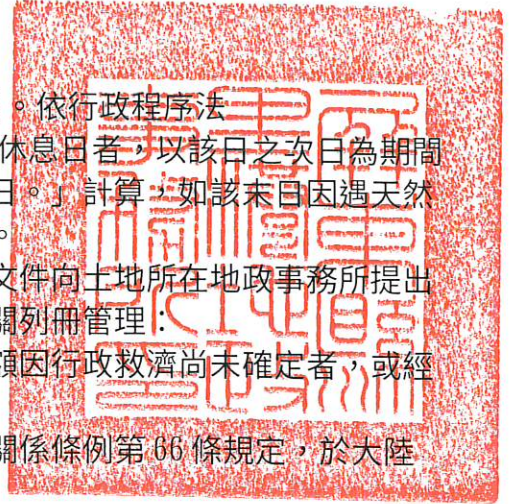 。依行政程序法
休息日者，以該日之次日為期間
日。」計算，如該末日因遇天然
。
文件向土地所在地政事務所提出
關列冊管理：
額因行政救濟尚未確定者，或經
關係條例第 66 條規定，於大陸